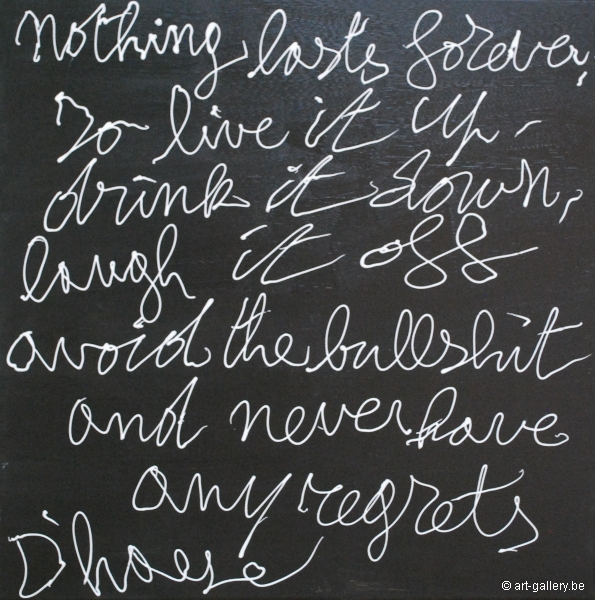 nothing lasts forever,
so live it up -
drink it down,
laugh it off
avoid the bullshit
and never have
any regrets
D'haese
© art-gallery.be